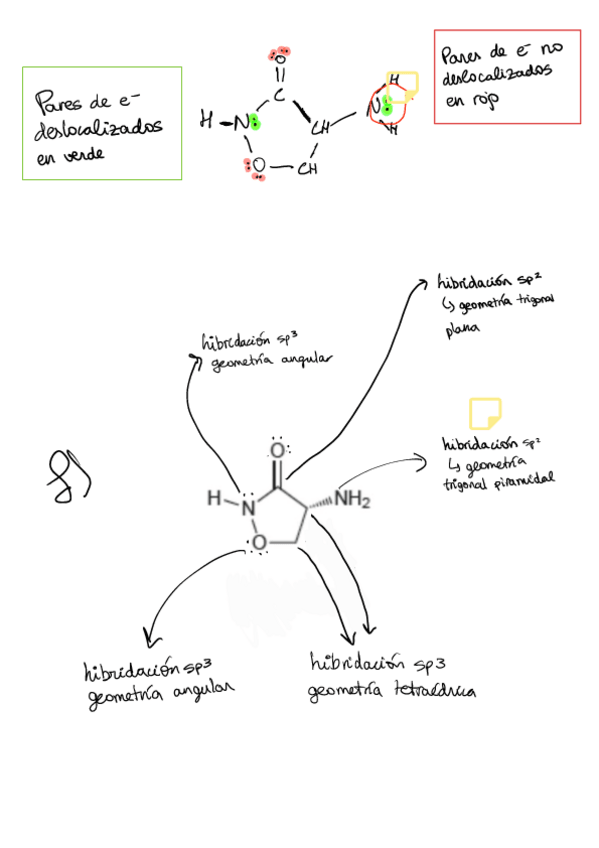 Pares de e-
deslocalizados
en verde
Pares de e- no
deslocalizados
en rojo
O
||
C
H
H - N
CH
N
H
O - CH
hibridación sp²
↳ geometría trigonal
plana
hibridación sp3
geometría angular
hibridación sp²
↳ geometría
trigonal piramidal
g)
O
H
N
NH₂
O
hibridación sp3
geometría angular
hibridación sp3
geometría tetraédrica